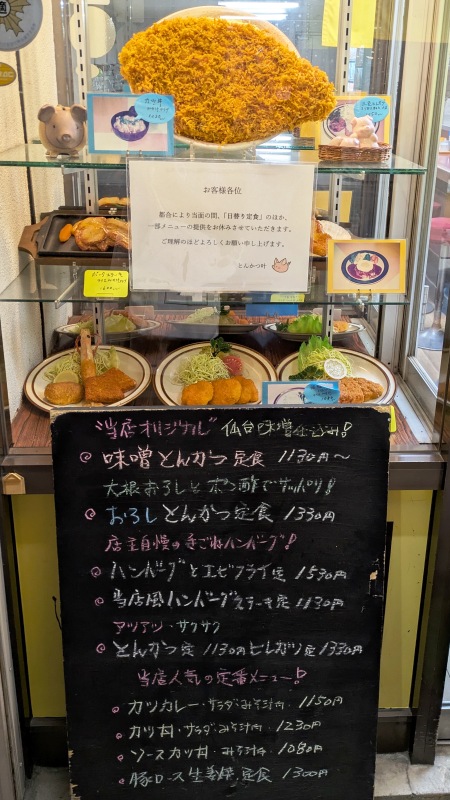 お客様各位
都合により当面の間、「日替り定食」のほか、
一部メニューの提供をお休みさせていただきます。
ご理解のほどよろしくお願い申し上げます。
とんかつ叶
"当店オリジナル" 仙台味噌仕込み!
味噌とんかつ定食 1130円〜
大根おろしとポン酢でサッパリ!
おろしとんかつ定食 1330円
店主自慢の手ごねハンバーグ!
ハンバーグとエビフライ定 1530円
当店風ハンバーグステーキ定 1130円
アツアツ・サクサク
とんかつ定 1130円 ヒレカツ定 1330円
当店人気の定番メニュー!
カツカレー・サラダ・みそ汁付 1150円
カツ丼・サラダ・みそ汁付 1230円
ソースカツ丼・みそ汁付 1080円
豚ロース生姜焼定食 1300円